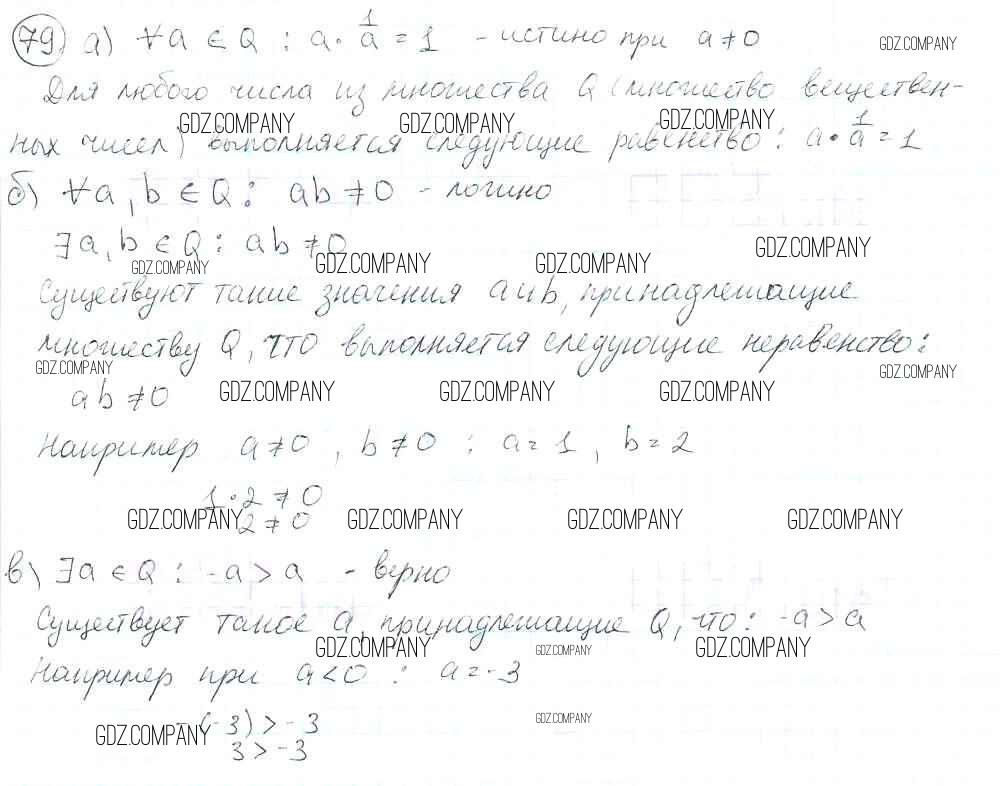 79) а) ∀a ∈ Q : a · 1/a = 1 - истино при a ≠ 0
GDZ.COMPANY
Для любого числа из множества Q (множество веществен-
GDZ.COMPANY GDZ.COMPANY GDZ.COMPANY
ных чисел) выполняется следующие равенство: a · 1/a = 1
б) ∀a, b ∈ Q : ab ≠ 0 - логино
∃a, b ∈ Q : ab ≠ 0
GDZ.COMPANY GDZ.COMPANY GDZ.COMPANY GDZ.COMPANY
Существуют такие значения a и b, принадлежащие
множеству Q, что выполняется следующие неравенство:
GDZ.COMPANY GDZ.COMPANY
ab ≠ 0
GDZ.COMPANY GDZ.COMPANY GDZ.COMPANY
Например a ≠ 0, b ≠ 0 : a = 1, b = 2
1 · 2 ≠ 0
GDZ.COMPANY GDZ.COMPANY GDZ.COMPANY GDZ.COMPANY
2 ≠ 0
в) ∃a ∈ Q : -a > a - верно
Существует такое a, принадлежащие Q, что: -a > a
GDZ.COMPANY GDZ.COMPANY GDZ.COMPANY
Например при a < 0 : a = -3
-(-3) > -3
GDZ.COMPANY GDZ.COMPANY
3 > -3